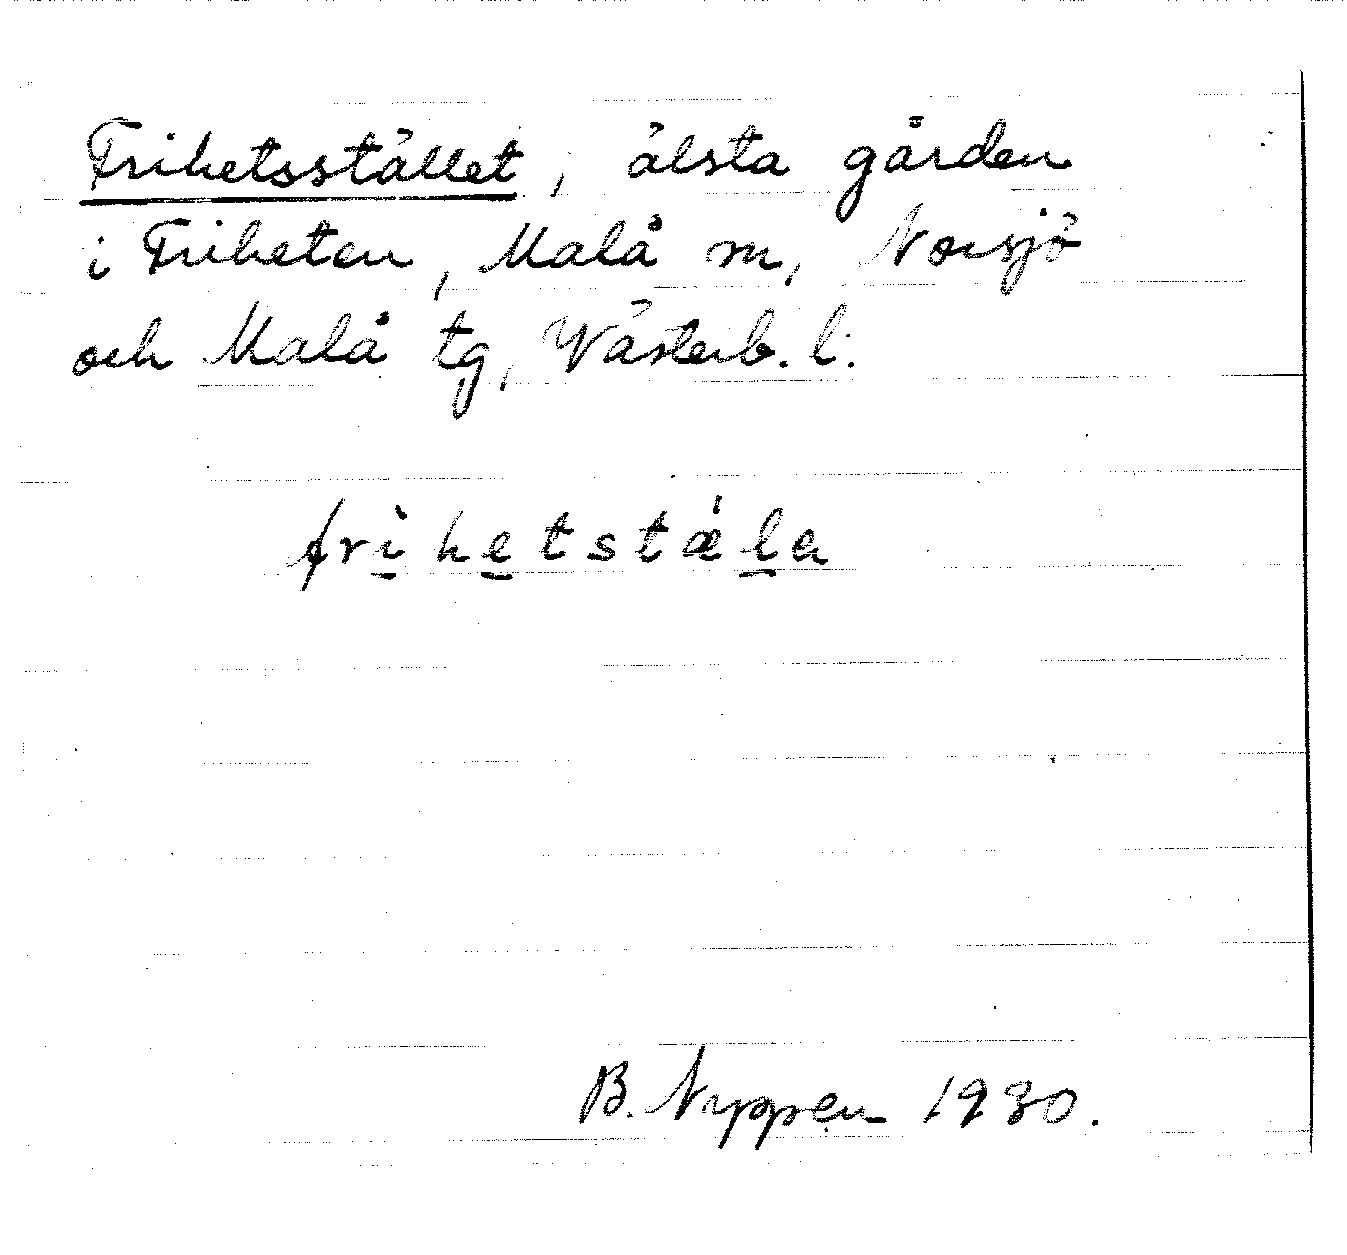 Frihetsstället, älsta gården
i Friheten, Malå m, Norsjö
och Malå tg, Västerb. l.
frìhetstǽla
B. Nyppen 1930.